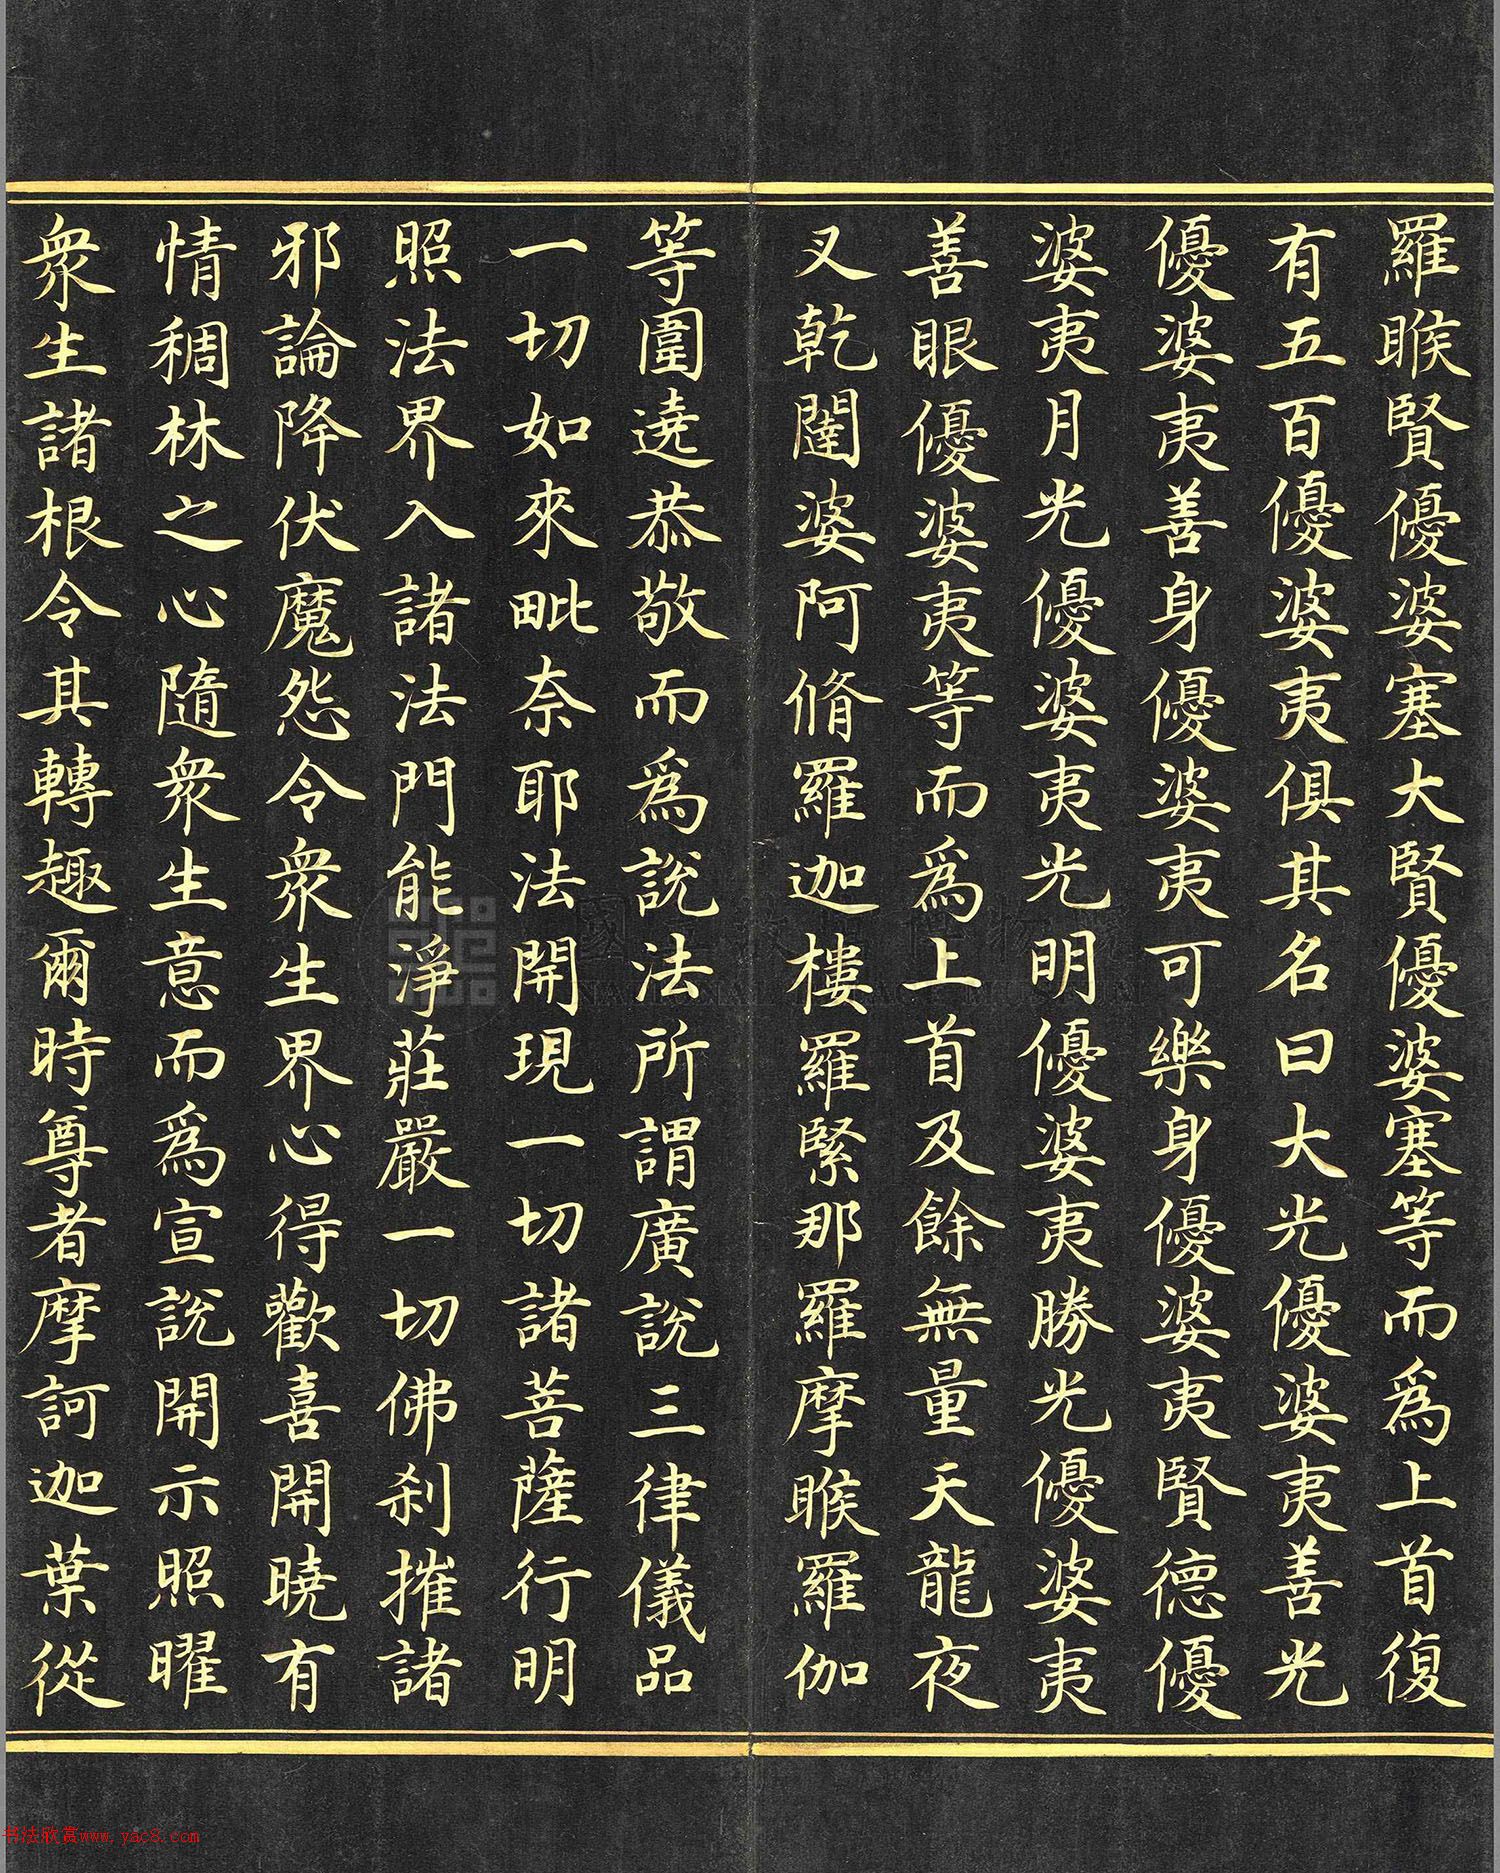 羅睺賢優婆塞大賢優婆塞等而為上首復
有五百優婆夷俱其名曰大光優婆夷善光
優婆夷善身優婆夷可樂身優婆夷賢德優
婆夷月光優婆夷光明優婆夷勝光優婆夷
善眼優婆夷等而為上首及餘無量天龍夜
叉乾闥婆阿脩羅迦樓羅緊那羅摩睺羅伽
等圍遶恭敬而為說法所謂廣說三律儀品
一切如來毗奈耶法開現一切諸菩薩行明
照法界入諸法門能淨莊嚴一切佛刹摧諸
邪論降伏魔怨令眾生界心得歡喜開曉有
情稠林之心隨眾生意而為宣說開示照曜
眾生諸根令其轉趣爾時尊者摩訶迦葉從
NATIONAL PALACE MUSEUM
书法欣赏www.yac8.com